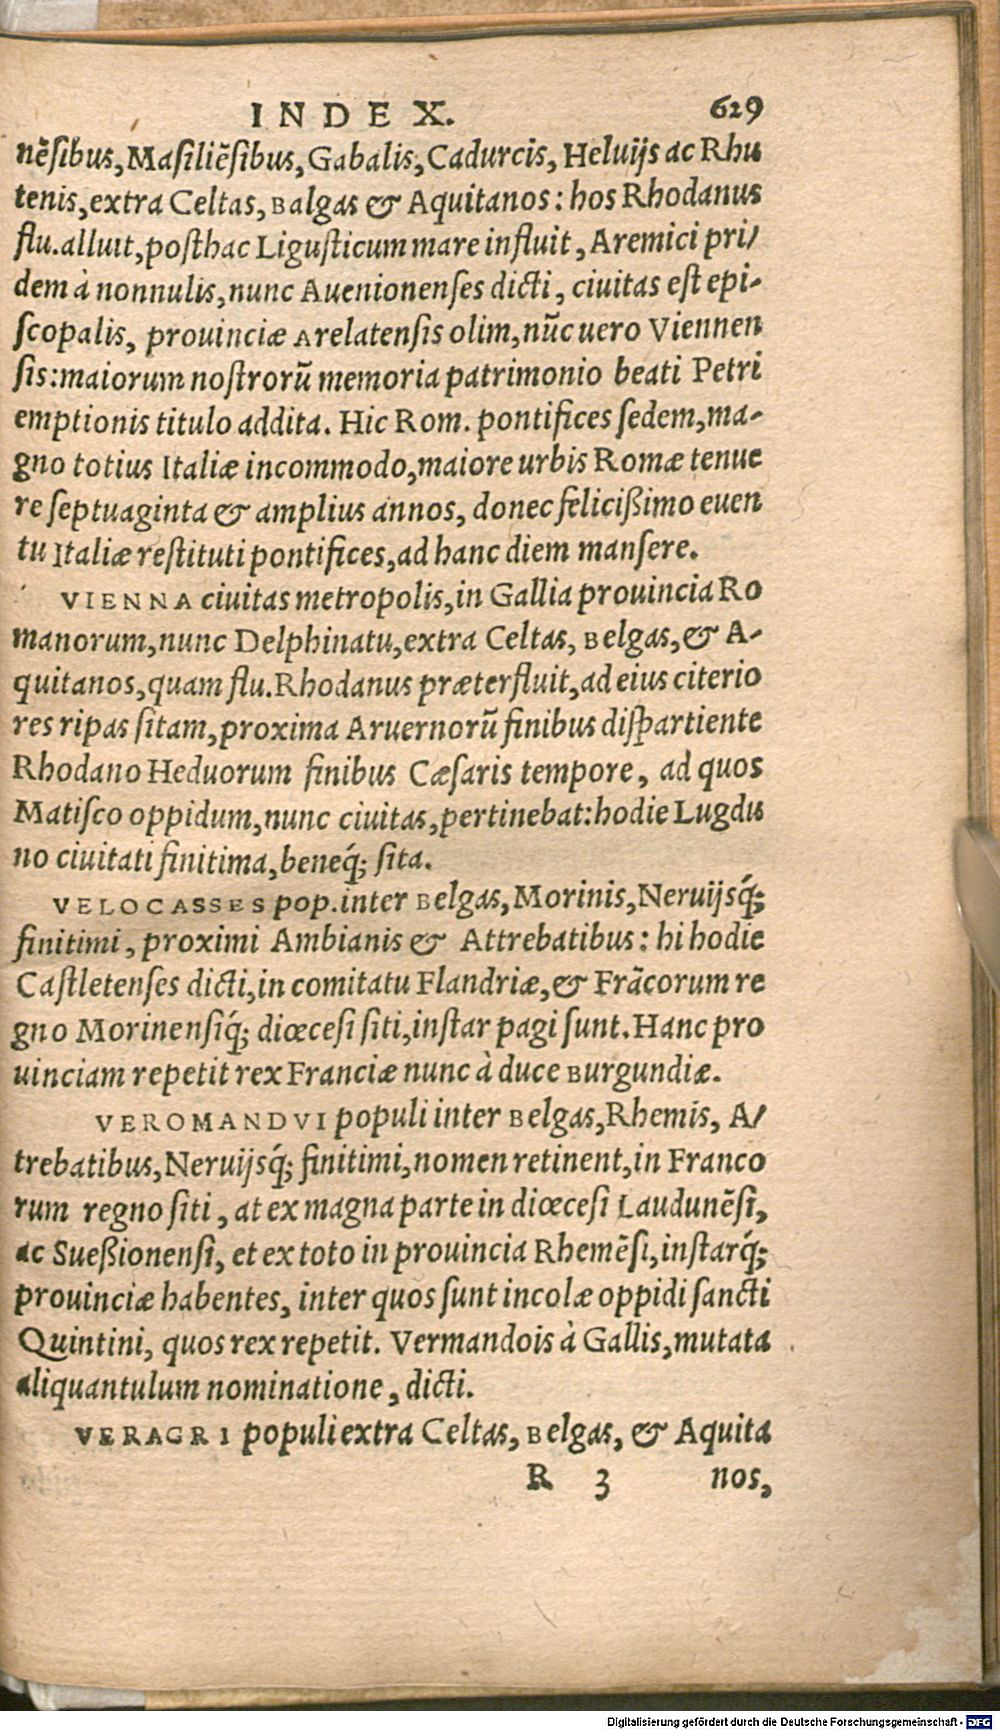 INDEX. 629
nẽsibus, Masiliẽsibus, Gabalis, Cadurcis, Heluijs ac Rhu
tenis, extra Celtas, Balgas & Aquitanos: hos Rhodanus
flu. alluit, posthac Ligusticum mare influit, Aremici pri/
dem à nonnulis, nunc Auenionenses dicti, ciuitas est epi-
scopalis, prouinciæ Arelatensis olim, nũc uero Viennen
sis: maiorum nostrorũ memoria patrimonio beati Petri
emptionis titulo addita. Hic Rom. pontifices sedem, ma-
gno totius Italiæ incommodo, maiore urbis Romæ tenue
re septuaginta & amplius annos, donec felicißimo euen
tu Italiæ restituti pontifices, ad hanc diem mansere.
VIENNA ciuitas metropolis, in Gallia prouincia Ro
manorum, nunc Delphinatu, extra Celtas, Belgas, & A-
quitanos, quam flu. Rhodanus præterfluit, ad eius citerio
res ripas sitam, proxima Aruernorũ finibus dispartiente
Rhodano Heduorum finibus Cæsaris tempore, ad quos
Matisco oppidum, nunc ciuitas, pertinebat: hodie Lugdu
no ciuitati finitima, beneq́; sita.
VELOCASSES pop. inter Belgas, Morinis, Neruijsq́;
finitimi, proximi Ambianis & Attrebatibus: hi hodie
Castletenses dicti, in comitatu Flandriæ, & Frãcorum re
gno Morinensiq́; diœcesi siti, instar pagi sunt. Hanc pro
uinciam repetit rex Franciæ nunc à duce Burgundiæ.
VEROMANDVI populi inter Belgas, Rhemis, A/
trebatibus, Neruijsq́; finitimi, nomen retinent, in Franco
rum regno siti, at ex magna parte in diœcesi Laudunẽsi,
ac Sueßionensi, et ex toto in prouincia Rhemẽsi, instarq́;
prouinciæ habentes, inter quos sunt incolæ oppidi sancti
Quintini, quos rex repetit. Vermandois à Gallis, mutata
aliquantulum nominatione, dicti.
VERAGRI populi extra Celtas, Belgas, & Aquita
R 3 nos,
Digitalisierung gefördert durch die Deutsche Forschungsgemeinschaft - DFG